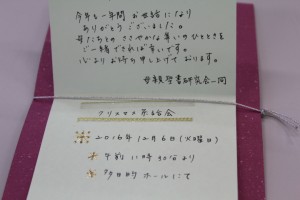 今年も一年間 お世話になり
ありがとうございました。
母たちとの ささやかな集いのひとときを
ご一緒できれば幸いです。
心よりお待ち申し上げております。
母親聖書研究会一同
クリスマス茶話会
2016年12月6日(火曜日)
午前 11時30分より
多目的ホールにて